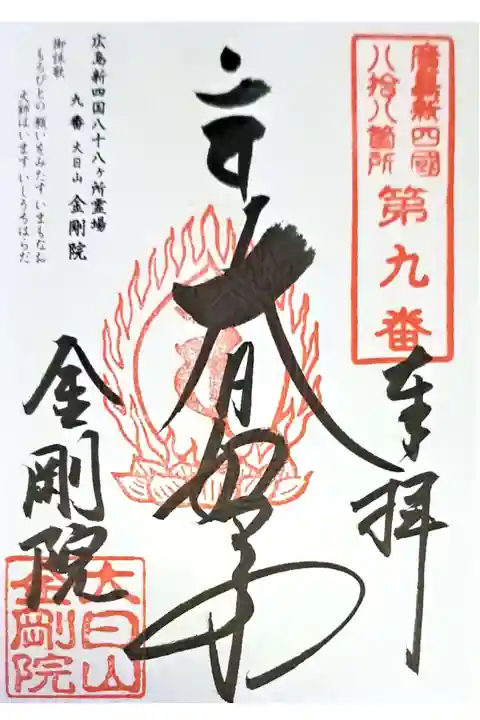 廣島新四國
八拾八箇所
第九番
奉拝
大日如来
金剛院
大日山
金剛院
広島新四国八十八ヶ所霊場
九番 大日山 金剛院
御詠歌
もろびとの 願いをみたす いまもなお
大師はいます いしうちはらだ